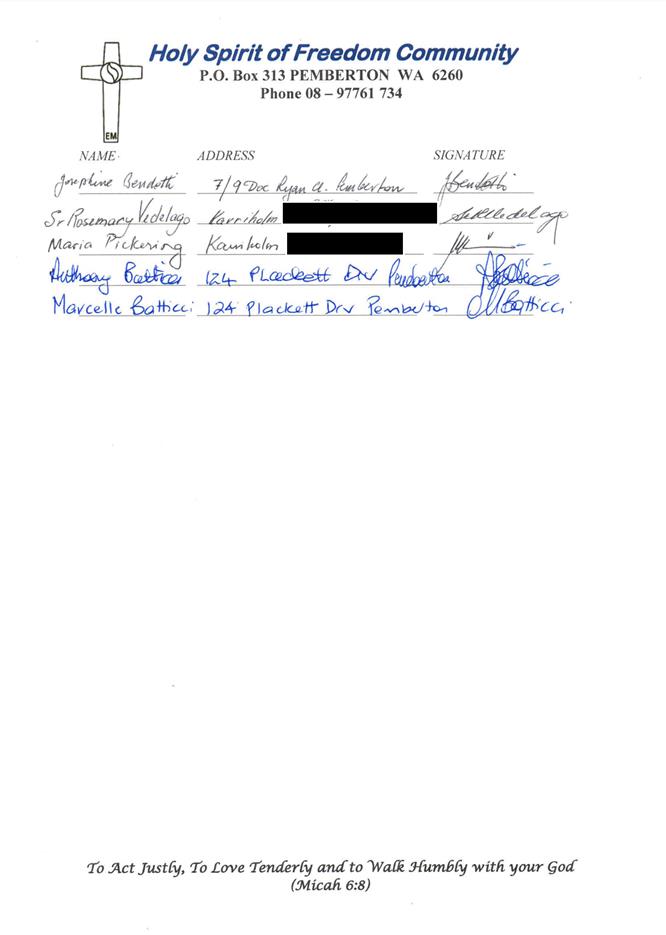 Holy Spirit of Freedom Community
P.O. Box 313 PEMBERTON WA 6260
Phone 08 – 97761 734
EM
NAME ADDRESS SIGNATURE
Josephine Bendotti 7/9 Doc Ryan Ct. Pemberton JBendotti
Sr Rosemary Vedelago Karriholm
Maria Pickering Karriholm
Anthony Batticci 124 Plackett Drv Pemberton
Marcelle Batticci 124 Plackett Drv Pemberton MBatticci
To Act Justly, To Love Tenderly and to Walk Humbly with your God
(Micah 6:8)